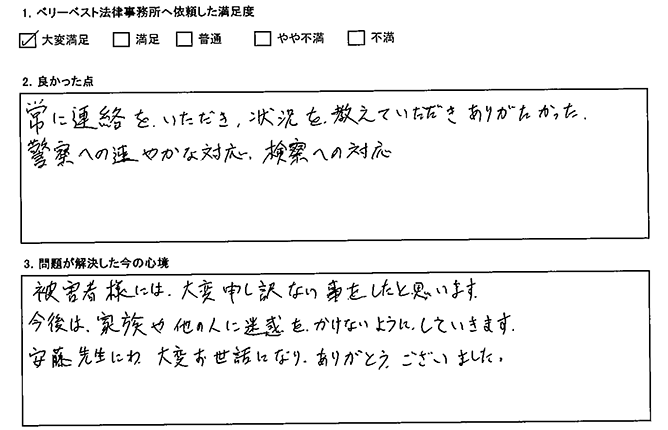 1. ベリーベスト法律事務所へ依頼した満足度
☑ 大変満足 □ 満足 □ 普通 □ やや不満 □ 不満
2. 良かった点
常に連絡を、いただき、状況を、教えていただき ありがたかった。
警察への速やかな対応、検察への対応
3. 問題が解決した今の心境
被害者様には、大変申し訳ない事をしたと思います。
今後は、家族や他の人に迷惑を、かけないように、していきます。
安藤先生にわ 大変お世話になり、ありがとう、ございました。